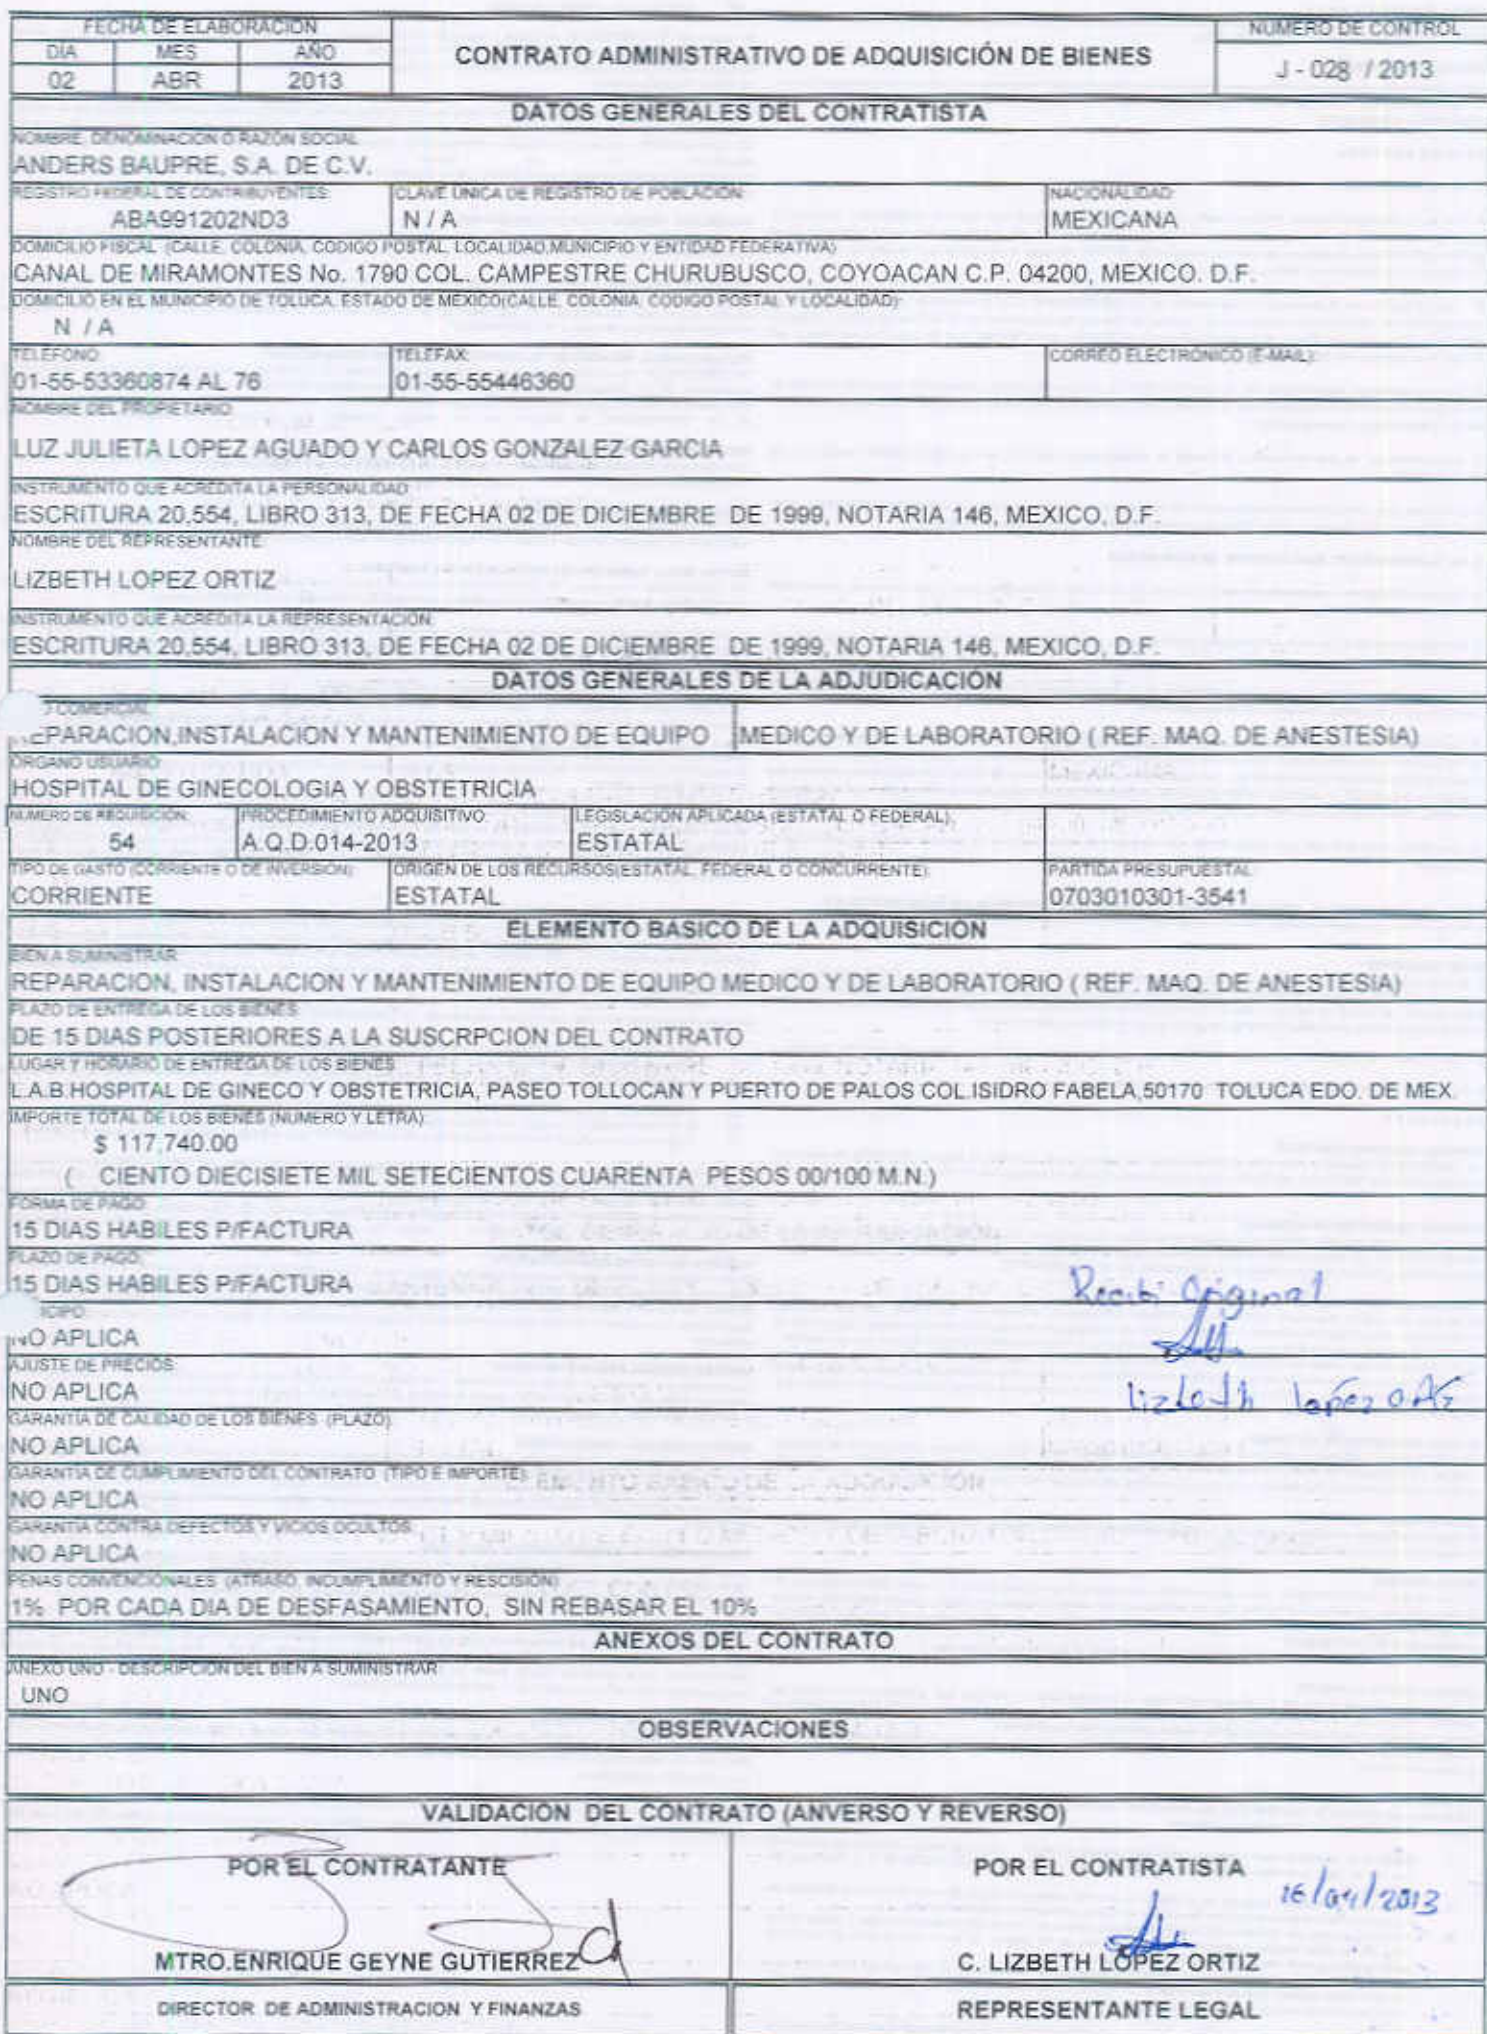 FECHA DE ELABORACIÓN
DIA MES AÑO
02 ABR 2013
CONTRATO ADMINISTRATIVO DE ADQUISICIÓN DE BIENES
NÚMERO DE CONTROL
J - 028 / 2013
DATOS GENERALES DEL CONTRATISTA
NOMBRE, DENOMINACIÓN O RAZÓN SOCIAL
ANDERS BAUPRE, S.A. DE C.V.
REGISTRO FEDERAL DE CONTRIBUYENTES: CLAVE ÚNICA DE REGISTRO DE POBLACIÓN: NACIONALIDAD:
ABA991202ND3 N / A MEXICANA
DOMICILIO FISCAL (CALLE, COLONIA, CODIGO POSTAL, LOCALIDAD,MUNICIPIO Y ENTIDAD FEDERATIVA):
CANAL DE MIRAMONTES No. 1790 COL. CAMPESTRE CHURUBUSCO, COYOACAN C.P. 04200, MEXICO. D.F.
DOMICILIO EN EL MUNICIPIO DE TOLUCA, ESTADO DE MÉXICO(CALLE, COLONIA, CODIGO POSTAL Y LOCALIDAD):
N / A
TELÉFONO: TELEFAX: CORREO ELECTRÓNICO (E-MAIL):
01-55-53360874 AL 76 01-55-55446360
NOMBRE DEL PROPIETARIO:
LUZ JULIETA LOPEZ AGUADO Y CARLOS GONZALEZ GARCIA
INSTRUMENTO QUE ACREDITA LA PERSONALIDAD:
ESCRITURA 20,554, LIBRO 313, DE FECHA 02 DE DICIEMBRE DE 1999, NOTARIA 146, MEXICO, D.F.
NOMBRE DEL REPRESENTANTE:
LIZBETH LOPEZ ORTIZ
INSTRUMENTO QUE ACREDITA LA REPRESENTACIÓN:
ESCRITURA 20,554, LIBRO 313, DE FECHA 02 DE DICIEMBRE DE 1999, NOTARIA 146, MEXICO, D.F.
DATOS GENERALES DE LA ADJUDICACIÓN
COMERCIAL:
EPARACION,INSTALACION Y MANTENIMIENTO DE EQUIPO MEDICO Y DE LABORATORIO ( REF. MAQ. DE ANESTESIA)
ÓRGANO USUARIO:
HOSPITAL DE GINECOLOGIA Y OBSTETRICIA
NÚMERO DE REQUISICIÓN: PROCEDIMIENTO ADQUISITIVO: LEGISLACIÓN APLICADA (ESTATAL O FEDERAL):
54 A.Q.D.014-2013 ESTATAL
TIPO DE GASTO (CORRIENTE O DE INVERSIÓN): ORIGEN DE LOS RECURSOS(ESTATAL, FEDERAL O CONCURRENTE): PARTIDA PRESUPUESTAL:
CORRIENTE ESTATAL 0703010301-3541
ELEMENTO BÁSICO DE LA ADQUISICIÓN
BIEN A SUMINISTRAR:
REPARACION, INSTALACION Y MANTENIMIENTO DE EQUIPO MEDICO Y DE LABORATORIO ( REF. MAQ. DE ANESTESIA)
PLAZO DE ENTREGA DE LOS BIENES:
DE 15 DIAS POSTERIORES A LA SUSCRPCION DEL CONTRATO
LUGAR Y HORARIO DE ENTREGA DE LOS BIENES:
L.A.B.HOSPITAL DE GINECO Y OBSTETRICIA, PASEO TOLLOCAN Y PUERTO DE PALOS COL.ISIDRO FABELA,50170 TOLUCA EDO. DE MEX.
IMPORTE TOTAL DE LOS BIENES (NÚMERO Y LETRA):
$ 117,740.00
( CIENTO DIECISIETE MIL SETECIENTOS CUARENTA PESOS 00/100 M.N.)
FORMA DE PAGO:
15 DIAS HABILES P/FACTURA
PLAZO DE PAGO:
15 DIAS HABILES P/FACTURA
Recibi Original
ICIPO:
NO APLICA
AJUSTE DE PRECIOS:
NO APLICA
lizbeth lopez ortiz
GARANTÍA DE CALIDAD DE LOS BIENES (PLAZO):
NO APLICA
GARANTÍA DE CUMPLIMIENTO DEL CONTRATO (TIPO E IMPORTE):
NO APLICA
GARANTÍA CONTRA DEFECTOS Y VICIOS OCULTOS:
NO APLICA
PENAS CONVENCIONALES (ATRASO, INCUMPLIMIENTO Y RESCISIÓN)
1% POR CADA DIA DE DESFASAMIENTO, SIN REBASAR EL 10%
ANEXOS DEL CONTRATO
ANEXO UNO - DESCRIPCIÓN DEL BIEN A SUMINISTRAR
UNO
OBSERVACIONES
VALIDACIÓN DEL CONTRATO (ANVERSO Y REVERSO)
POR EL CONTRATANTE POR EL CONTRATISTA
16/04/2013
MTRO.ENRIQUE GEYNE GUTIERREZ C. LIZBETH LÓPEZ ORTIZ
DIRECTOR DE ADMINISTRACION Y FINANZAS REPRESENTANTE LEGAL